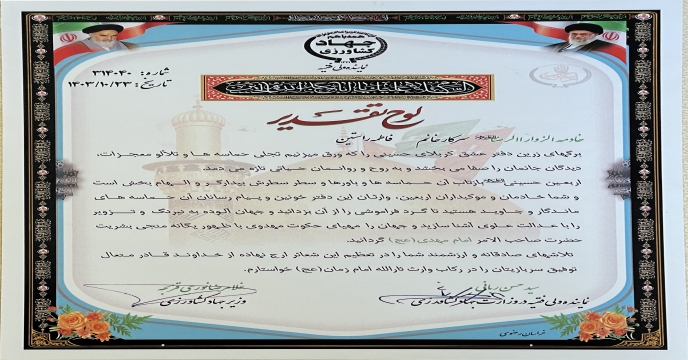 همه با هم
جهاد
کشاورزی
نماینده ولی فقیه
شماره: ۳۱۴۰۴۰
تاریخ: ۱۴۰۳/۱۰/۲۳
لوح تقدیر
خادمه الزوار الرضا سرکار خانم فاطمه راستین
برگهای زرین دفتر عشق کربلای حسینی را که ورق میزنیم تجلی حماسه ها و تلألو معجزات،
دیدگان جانمان را صفا می بخشد و به روح و روانمان حیاتی تازه می دهد.
اربعین حسینی بازتاب آن حماسه ها و باورها و سطر سطرش بیدارگر و الهام بخش است
و شما خادمان و موکبداران اربعین، وارثان این دفتر خونین و پیام رسانان آن حماسه های
ماندگار و جاوید هستید تا گرد فراموشی را از آن بزدائید و جهان آلوده به نیرنگ و تزویر
را با عدالت علوی آشنا سازید و جهان را مهیای حکومت مهدوی با ظهور یگانه منجی بشریت
حضرت صاحب الامر امام مهدی (عج) گردانید.
تلاشهای صادقانه و ارزشمند شما را در تعظیم این شعائر ارج نهاده از خداوند قادر متعال
توفیق سربازیتان را در رکاب وارث ثارالله امام زمان (عج) خواستارم.
سید حسن ربانی
نماینده ولی فقیه در وزارت جهاد کشاورزی
غلامرضا نوری قزلجه
وزیر جهاد کشاورزی
خراسان رضوی